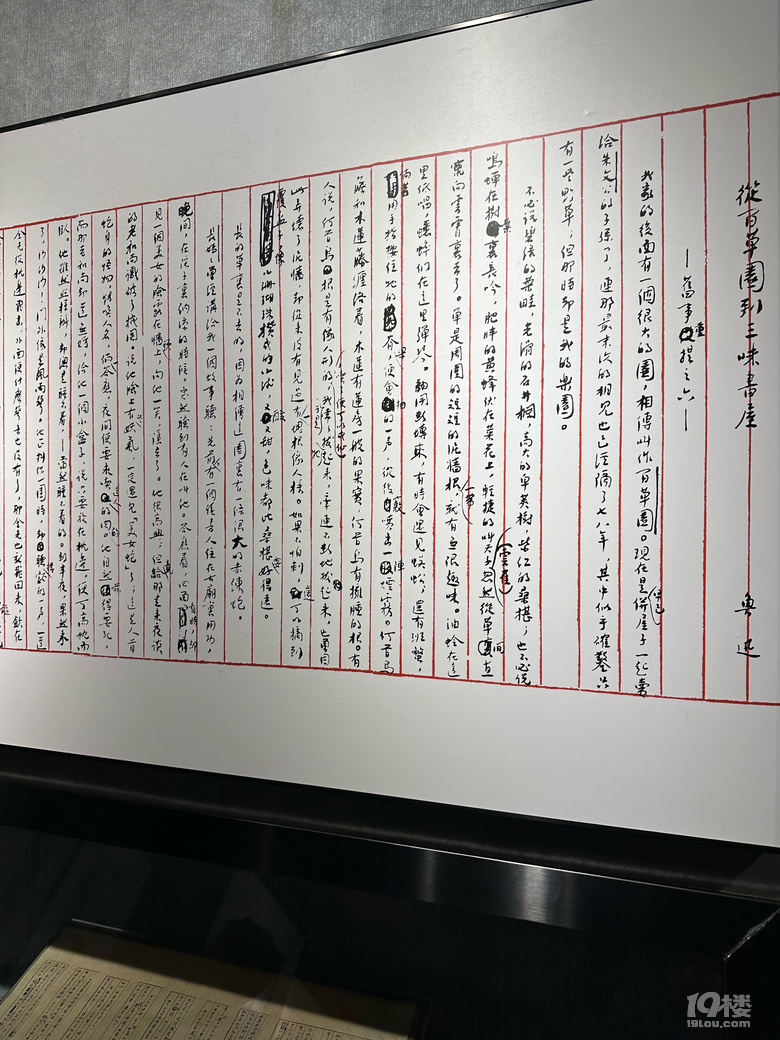 從百草園到三味書屋
魯迅
—舊事重提之六—
我家的後面有一個很大的園,相傳叫作百草園。現在是早已併屋子一起賣
給朱文公的子孫了,連那最末次的相見也已經隔了七八年,其中似乎確鑿只
有一些野草,但那時卻是我的樂園。
不必說碧綠的菜畦,光滑的石井欄,高大的皁莢樹,紫紅的桑椹;也不必說
鳴蟬在樹葉裏長吟,肥胖的黃蜂伏在菜花上,輕捷的叫天子(雲雀)忽然從草間直
竄向雲霄裏去了。單是周圍的短短的泥牆根一帶,就有無限趣味。油蛉在這
里低唱,蟋蟀們在這里彈琴。翻開斷磚來,有時會遇見蜈蚣;還有斑蝥,
倘若用手指按住牠的脊梁,便會拍的一聲,從後竅噴出一陣煙霧。何首烏
藤和木蓮藤纏絡着,木蓮有蓮房一般的果實,何首烏有擁腫的根。有
人說,何首烏根是有像人形的,喫了便可以成仙,我於是常常拔牠起來,牽連不斷地拔起來,也曾因
此弄壞了泥牆,卻從來沒有見過有一塊根像人樣。如果不怕刺,還可以摘到
覆盆子,像小珊瑚珠攢成的小球,又酸又甜,色味都比桑椹好得遠。
長的草裏是不去的,因為相傳這園裏有一條很大的赤練蛇。
長媽媽曾經講給我一個故事聽:先前,有一個讀書人住在古廟裏用功,
晚間,在院子裏納涼的時候,突然聽到有人在叫他。答應着,四面看時,卻
見一個美女的臉露在牆頭上,向他一笑,隱去了。他很高興;但竟給那走來夜談
的老和尚識破了機關。說他臉上有些妖氣,一定遇見「美女蛇」了;這是人首
蛇身的怪物,能喚人名,倘一答應,夜間便要來喫這人的肉的。他自然嚇得要死,
而那老和尚卻道無妨,給他一個小盒子,說只要放在枕邊,便可高枕而
臥。他雖然照樣辦,卻總是睡不着,——當然睡不着的。到半夜,果然來
了,沙沙沙!門外像是風雨聲。他正抖作一團時,卻聽得豁的一聲,一道
金光從枕邊飛出,外面便什麼聲音也沒有了,那金光也就飛回來,斂在
19楼
19lou.com